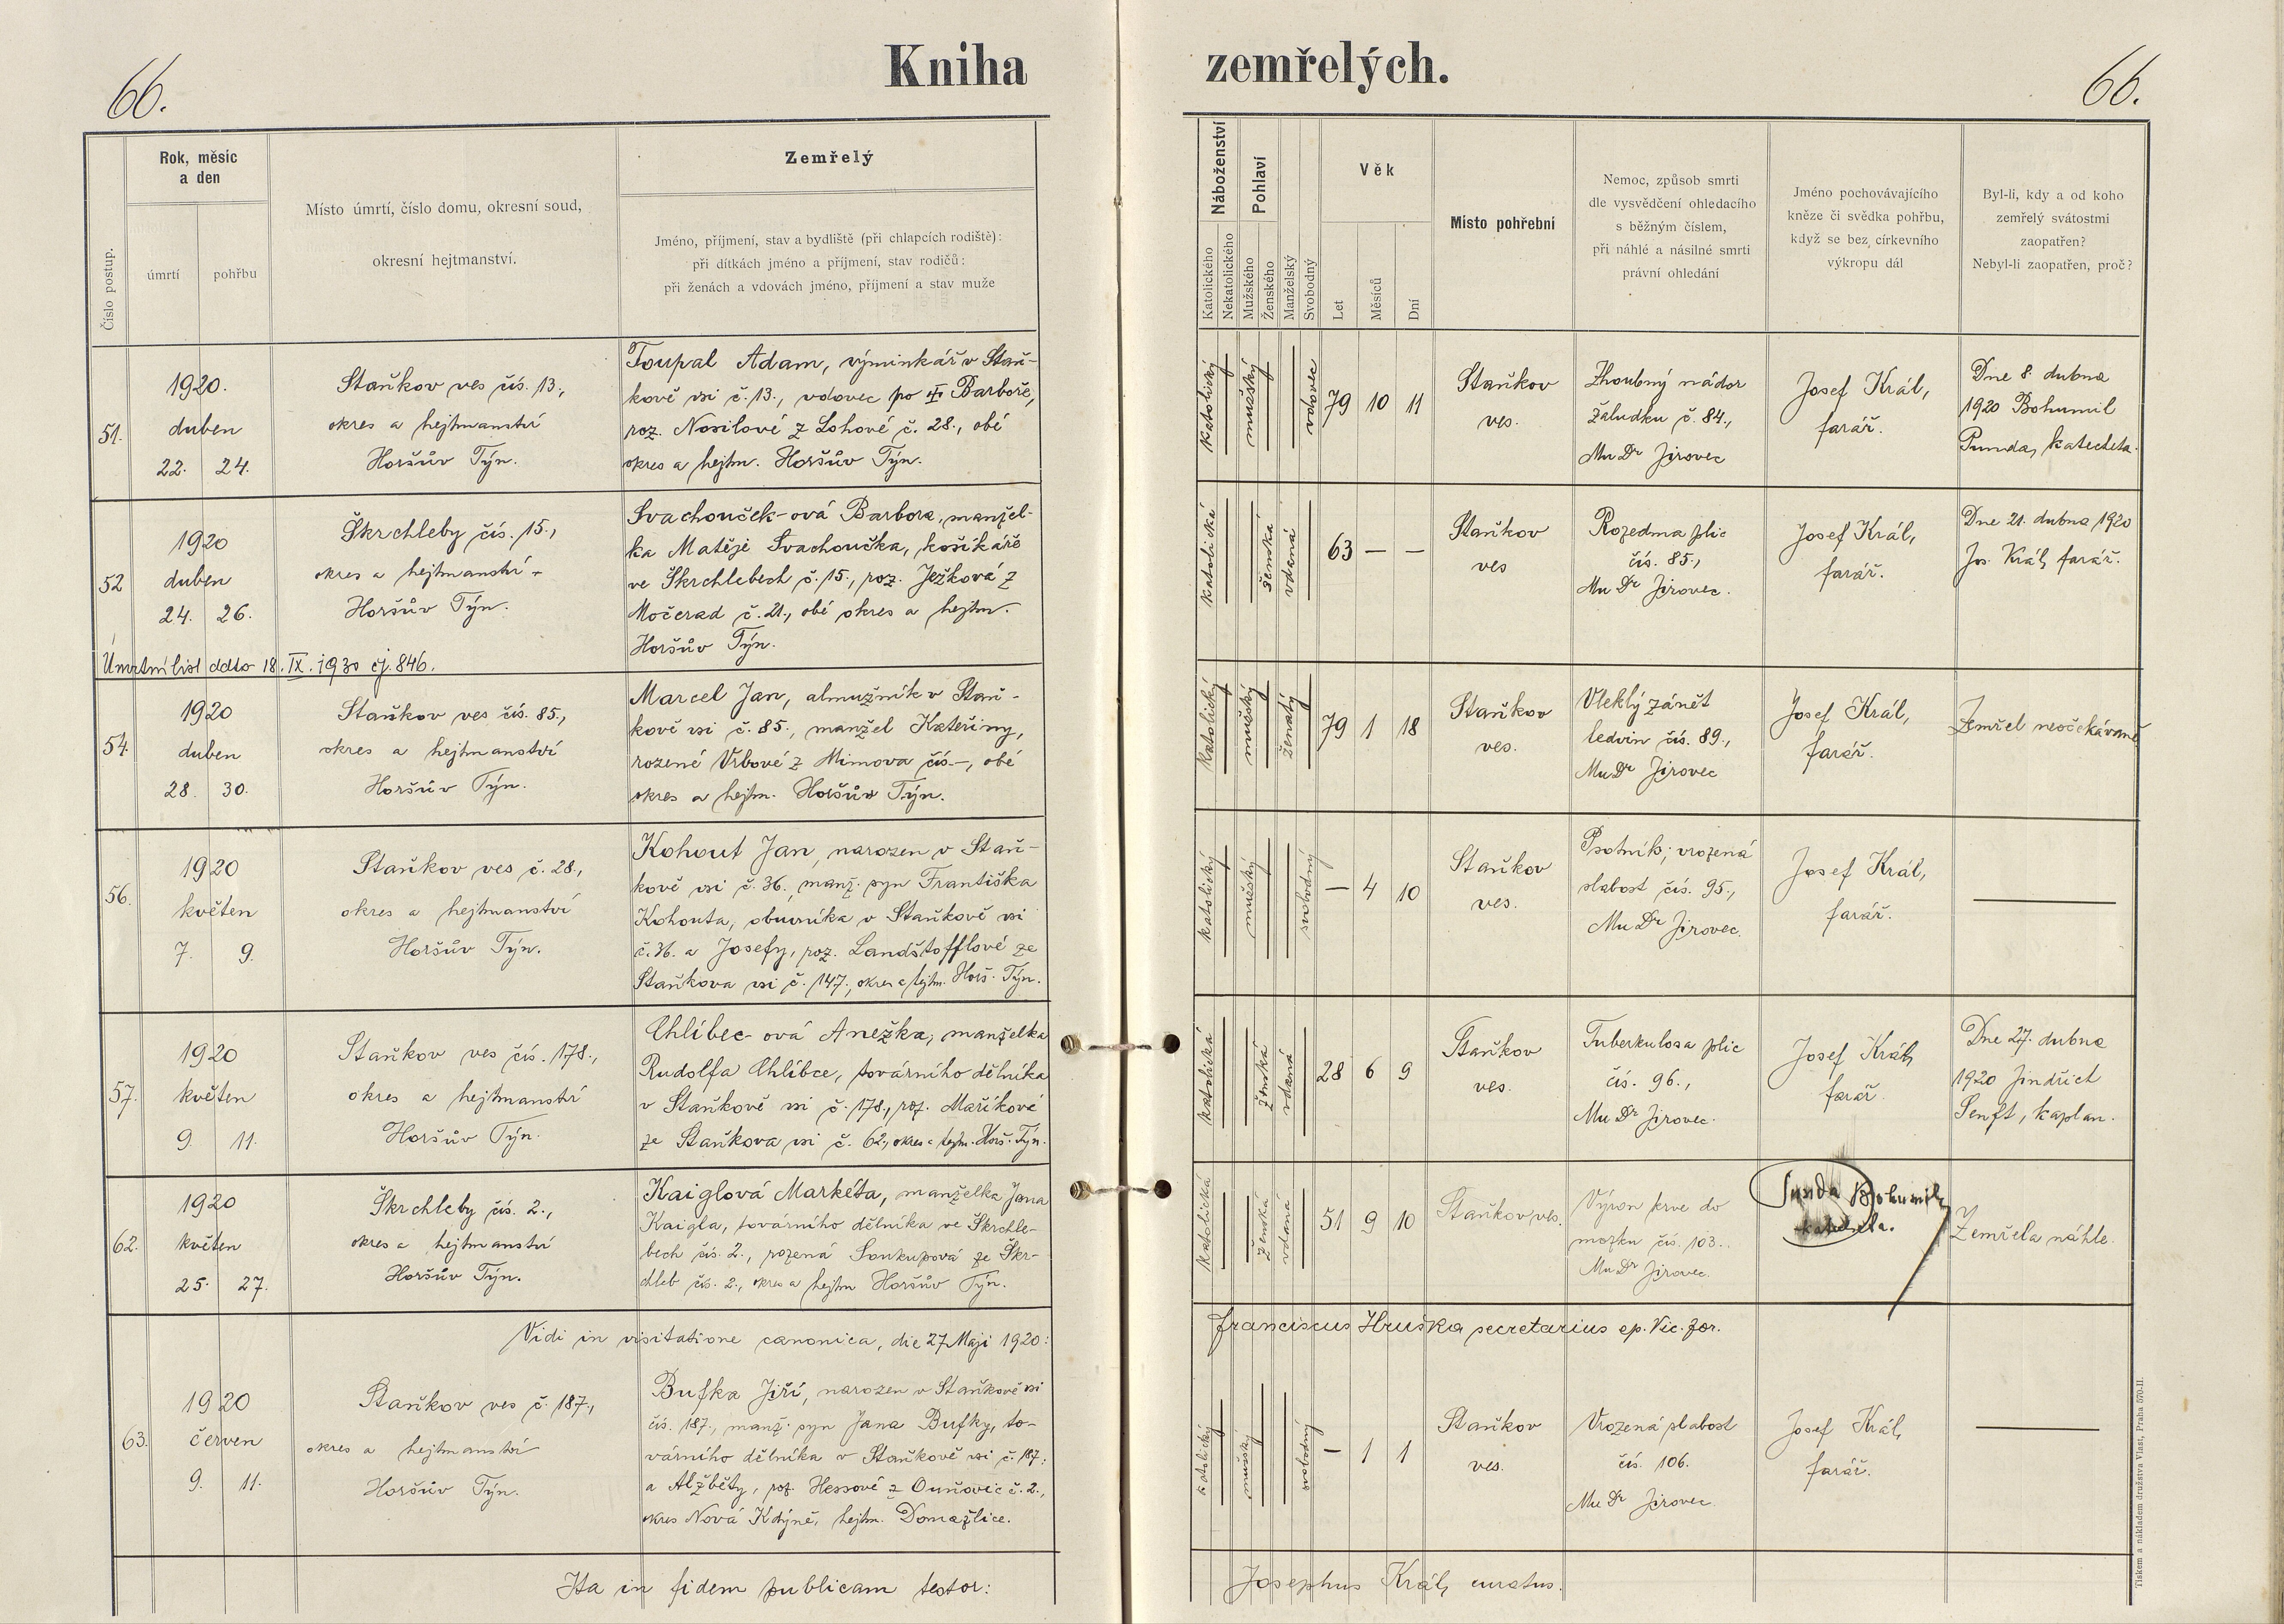 66.
Kniha
zemřelých.
66.
Číslo postup.
Rok, měsíc
a den
úmrtí
pohřbu
Místo úmrtí, číslo domu, okresní soud,
okresní hejtmanství.
Zemřelý
Jméno, příjmení, stav a bydliště (při chlapcích rodiště):
při dítkách jméno a příjmení, stav rodičů:
při ženách a vdovách jméno, příjmení a stav muže
Náboženství
Katolického
Nekatolického
Pohlaví
Mužského
Ženského
Manželský
Svobodný
Věk
Let
Měsíců
Dní
Místo pohřební
Nemoc, způsob smrti
dle vysvědčení ohledacího
s běžným číslem,
při náhlé a násilné smrti
právní ohledání
Jméno pochovávajícího
kněze či svědka pohřbu,
když se bez církevního
výkropu dál
Byl-li, kdy a od koho
zemřelý svátostmi
zaopatřen?
Nebyl-li zaopatřen, proč?
51.
1920.
duben
22. 24.
Staňkov ves čís. 13.,
okres a hejtmanství
Horšův Týn.
Toupal Adam, výminkář v Staň-
kově vsi č. 13., vdovec po Barboře,
roz. Nosilové z Lohové č. 28., obé
okres a hejtm. Horšův Týn.
katolický
mužský
vdovec
79 10 11
Staňkov
ves.
Zhoubný nádor
žaludku č. 84.,
MuDr Jirovec
Josef Král,
farář.
Dne 8. dubna
1920 Bohumil
Punda, katecheta.
52
1920
duben
24. 26.
Škrchleby čís. 15.,
okres a hejtmanství
Horšův Týn.
Svachouček-ová Barbora, manžel-
ka Matěje Svachoučka, košíkáře
ve Škrchlebech č. 15., roz. Ježková z
Močerad č. 21., obé okres a hejtm.
Horšův Týn.
katolická
ženská
vdaná
63 — —
Staňkov
ves
Rozedma plic
čís. 85.,
MuDr Jirovec.
Josef Král,
farář.
Dne 21. dubna 1920
Jos. Král, farář.
Úmrtní list ddto 18. IX. 1930 čj. 846.
54.
1920
duben
28. 30.
Staňkov ves čís. 85.,
okres a hejtmanství
Horšův Týn.
Marcel Jan, almužník v Staň-
kově vsi č. 85., manžel Kateřiny,
rozené Vrbové z Mimova čís. —, obé
okres a hejtm. Horšův Týn.
katolický
mužský
ženatý
79 1 18
Staňkov
ves.
Vleklý zánět
ledvin čís. 89.,
MuDr Jirovec
Josef Král,
farář.
Zemřel neočekávaně
56.
1920
květen
7. 9.
Staňkov ves č. 28.,
okres a hejtmanství
Horšův Týn.
Kohout Jan, narozen v Staň-
kově vsi č. 36. manž. syn Františka
Kohouta, obuvníka v Staňkově vsi
č. 36. a Josefy, roz. Landštofflové ze
Staňkova vsi č. 147., okres a hejtm. Horš. Týn.
katolický
mužský
svobodný
— 4 10
Staňkov
ves.
Psotník; vrozená
slabost čís. 95.,
MuDr Jirovec.
Josef Král,
farář.
—
57.
1920
květen
9. 11.
Staňkov ves čís. 178.,
okres a hejtmanství
Horšův Týn.
Chlíbec-ová Anežka, manželka
Rudolfa Chlíbce, továrního dělníka
v Staňkově vsi č. 178., roz. Maříková
ze Staňkova vsi č. 62., okres a hejtm. Horš. Týn.
katolická
ženská
vdaná
28 6 9
Staňkov
ves.
Tuberkulosa plic
čís. 96.,
MuDr Jirovec.
Josef Král,
farář
Dne 27. dubna
1920 Jindřich
Senft, kaplan.
62.
1920
květen
25. 27.
Škrchleby čís. 2.,
okres a hejtmanství
Horšův Týn.
Kaiglová Markéta, manželka Jana
Kaigla, továrního dělníka ve Škrchle-
bech čís. 2., rozená Soukupová ze Škr-
chleb čís. 2., okres a hejtm Horšův Týn.
katolická
ženská
vdaná
51 9 10
Staňkov ves.
Výron krve do
mozku čís. 103..
MuDr Jirovec.
Punda Bohumil,
katecheta.
Zemřela náhle.
Vidi in visitatione canonica, die 27 Maji 1920:
Franciscus Hruška secretarius ep. Vic. for.
63.
1920
červen
9. 11.
Staňkov ves č. 187.,
okres a hejtmanství
Horšův Týn.
Bufka Jiří, narozen v Staňkově vsi
čís. 187., manž. syn Jana Bufky, to-
várního dělníka v Staňkově vsi č. 187.
a Alžběty, roz. Hessové z Ouňovic č. 2.,
okres Nová Kdýně, hejtm. Domažlice.
katolický
mužský
svobodný
— 1 1
Staňkov
ves.
Vrozená slabost
čís. 106.
MuDr Jirovec.
Josef Král,
farář.
—
Ita in fidem publicam testor:
Josephus Král, curatus.
Tiskem a nákladem družstva Vlast, Praha 570-II.